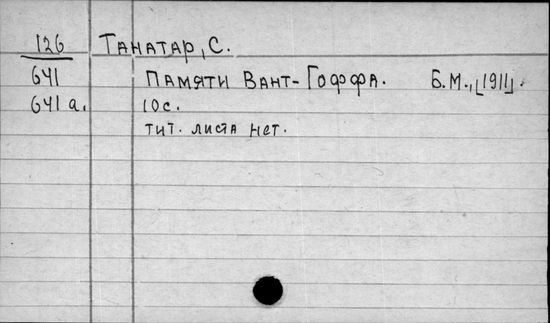 126 Танатар, С.
641 Памяти Вант-Гоффа. Б.М., [1911].
641 а. 10с.
тит. листа нет.